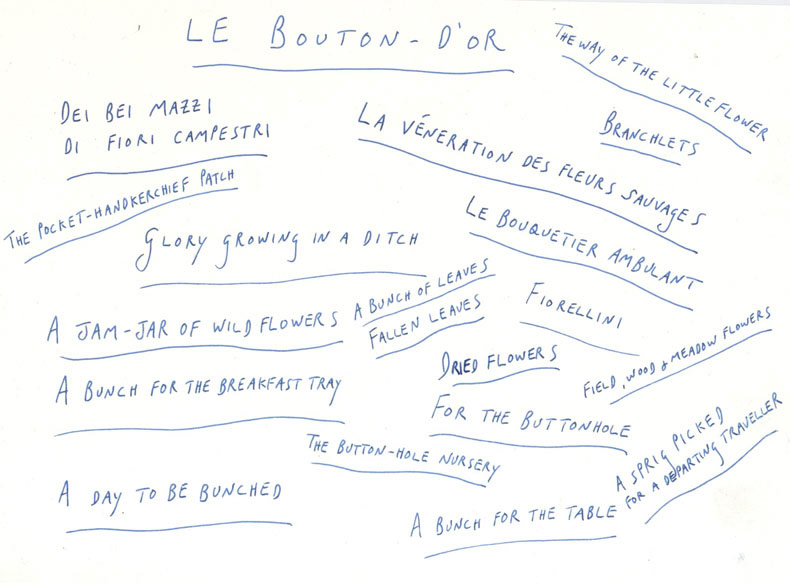 LE BOUTON-D'OR
THE WAY OF THE LITTLE FLOWER
DEI BEI MAZZI
DI FIORI CAMPESTRI
BRANCHLETS
LA VÉNERATION DES FLEURS SAUVAGES
THE POCKET-HANDKERCHIEF PATCH
GLORY GROWING IN A DITCH
LE BOUQUETIER AMBULANT
A BUNCH OF LEAVES
FIORELLINI
A JAM-JAR OF WILD FLOWERS
FALLEN LEAVES
DRIED FLOWERS
FIELD, WOOD & MEADOW FLOWERS
A BUNCH FOR THE BREAKFAST TRAY
FOR THE BUTTONHOLE
THE BUTTON-HOLE NURSERY
A SPRIG PICKED
FOR A DEPARTING TRAVELLER
A DAY TO BE BUNCHED
A BUNCH FOR THE TABLE